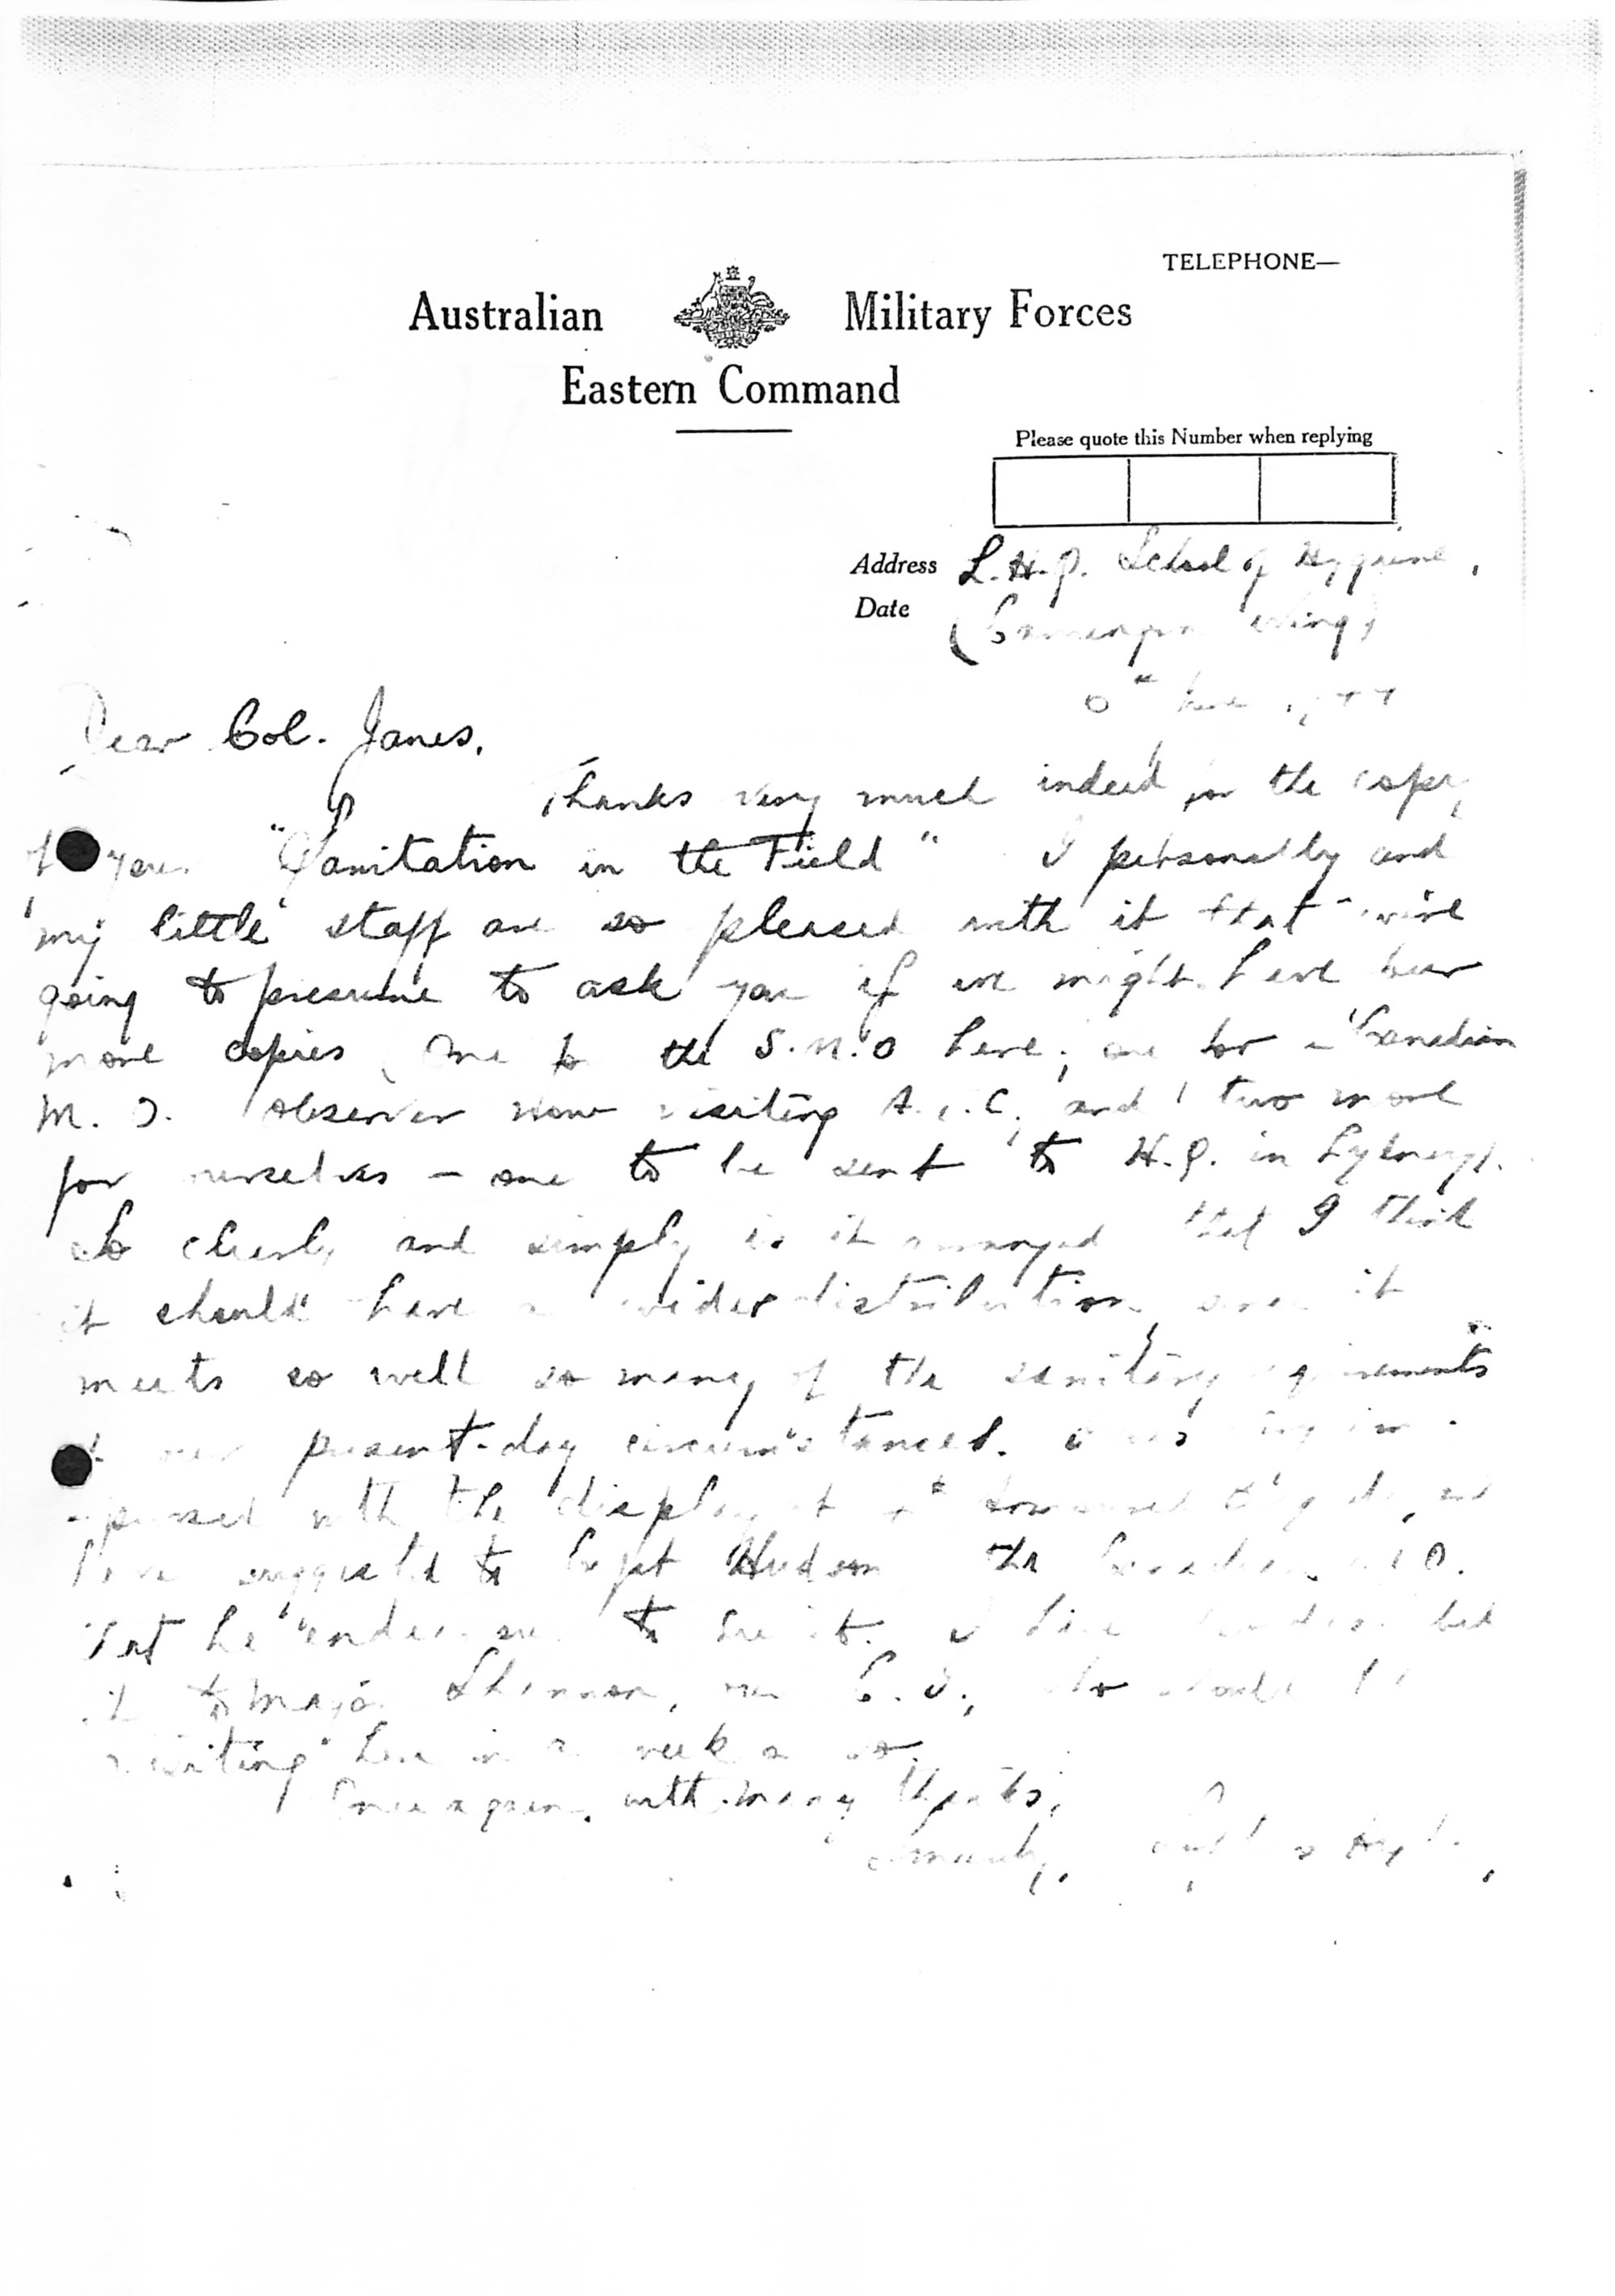 TELEPHONE—
Australian Military Forces
Eastern Command
Please quote this Number when replying
Address L.H.Q. School of Hygiene,
Date
Dear Col. Janes,
Thanks very much indeed for the copy
of your "Sanitation in the Field" I personally and
my little staff are so pleased with it that we're
going to presume to ask you if we might have four
more copies, One to the S.M.O here, one for a Canadian
M.O. observer now visiting and two more
for ourselves – one to be sent to H.Q. in Sydney.
So clearly and simply is it arranged that I think
it should have a wider distribution, since it
meets so well so many of the sanitary requirements
present-day circumstances.
with the display at and
have suggested to Capt Hudson the Canadian M.O.
that he to see it. I have
it to Major Shannon, our C.I., who should be
visiting here in a week or so.
Once again, with many thanks,